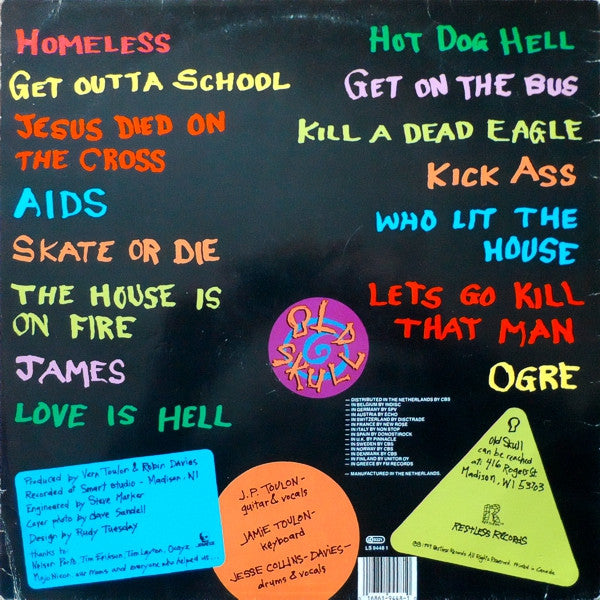 HOMELESS
GET OUTTA SCHOOL
JESUS DIED ON
THE CROSS
AIDS
SKATE OR DIE
THE HOUSE IS
ON FIRE
JAMES
LOVE IS HELL
HOT DOG HELL
GET ON THE BUS
KILL A DEAD EAGLE
KICK ASS
WHO LIT THE
HOUSE
LETS GO KILL
THAT MAN
OGRE
OLD
SKULL
– DISTRIBUTED IN THE NETHERLANDS BY CBS
– IN BELGIUM BY INDISC
– IN GERMANY BY SPV
– IN AUSTRIA BY ECHO
– IN SWITZERLAND BY DISCTRADE
– IN FRANCE BY NEW ROSE
– IN ITALY BY NON STOP
– IN SPAIN BY DONOSTIROCK
– IN U.K. BY PINNACLE
– IN SWEDEN BY CBS
– IN NORWAY BY CBS
– IN DENMARK BY CBS
– IN FINLAND BY UNITOR OY
– IN GREECE BY FM RECORDS
– MANUFACTURED IN THE NETHERLANDS.
LS 9448 1
Produced by Vern Toulon & Robin Davies
Recorded at Smart Studio - Madison, WI
Engineered by Steve Marker
Cover photo by Dave Sandell
Design by Rudy Tuesday
thanks to:
Nelson Ports, Tim Erikson, Tim Layton,
Mojo Nixon, our moms and everyone who helped us...
J.P. TOULON-
guitar & vocals
JAMIE TOULON-
keyboard
JESSE COLLINS-DAVIES-
drums & vocals
Old Skull
can be reached
at: 416 Rogers St
Madison, WI 53703
R
RESTLESS RECORDS
1989 Restless Records All Rights Reserved. Printed in Canada
16861-9448-1